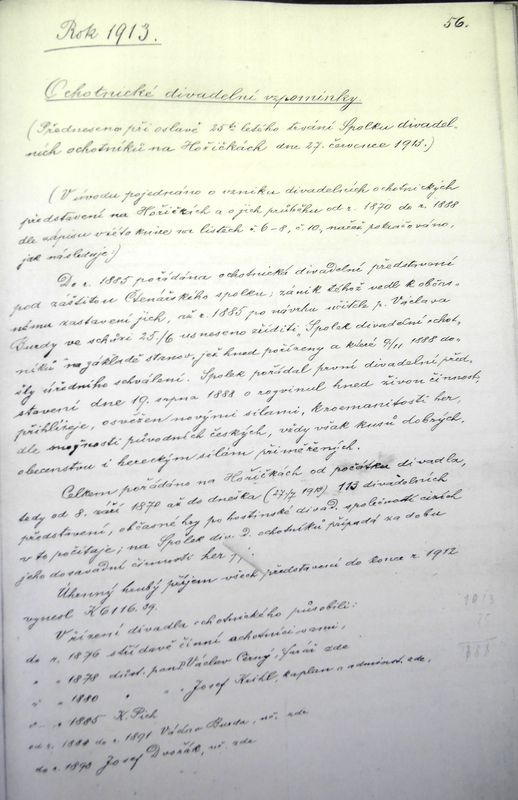 56.
Rok 1913.
Ochotnické divadelní vzpomínky.
(Předneseno při oslavě 25ti letého trvání Spolku divadel-
ních ochotníků na Hořičkách dne 27. července 1913.)
(V úvodu pojednáno o vzniku divadelních ochotnických
představení na Hořičkách a o jich průběhu od r. 1870 do r. 1888
dle zápisu v této knize na listech č. 6-8, č. 10, načež pokračováno,
jak následuje:)
Do r. 1885 pořádána ochotnická divadelní představení
pod záštitou Čtenářského spolku; zánik téhož vedl k občas-
nému zastavení jich, až r. 1885 po návrhu učitele p. Václava
Burdy ve schůzi 25./6 usneseno zříditi "Spolek divadelní ochot-
níků" na základě stanov, jež hned pořízeny a které 9/11 1888 do-
šly úředního schválení. Spolek pořádal první divadelní před-
stavení dne 19. srpna 1888 a rozvinul hned živou činnost,
přihlížeje, osvěžen novými silami, k rozmanitosti her,
dle možnosti původních českých, vždy však kusů dobrých,
obecenstvu i hereckým silám přiměřených.
Celkem pořádáno na Hořičkách od počátku divadla,
tedy od 8. září 1870 až do dneška (27./7. 1913) 113 divadelních
představení, občasné hry pohostinské divad. společností cizích
v to počítaje; na Spolek div. ochotníků připadá za dobu
jeho dosavadní činnosti her
Úhrnný hrubý příjem všech představení do konce r. 1912
vynesl K 6116.89.
V řízení divadla ochotnického působili:
do r. 1876 střídavě činní ochotníci sami,
" " 1878 důst. pan Václav Černý, farář zde
" " 1880 " " Josef Keihl, kaplan a administ. zde,
" " 1885 K. Pich
od r. 1888 do r. 1891 Václav Burda, uč. zde
do r. 1893 Josef Dvořák, uč. zde
1913